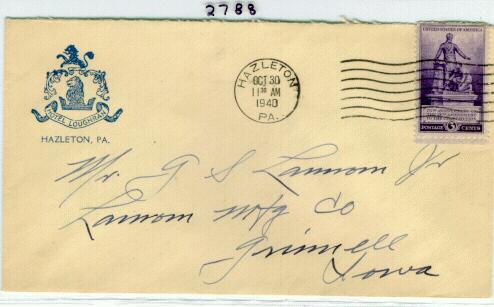 2788
HOTEL LOUGHRAN
HAZLETON, PA.
HAZLETON
OCT 30
11 30 AM
1940
PA.
UNITED STATES OF AMERICA
POSTAGE 3 CENTS
Mr. G S Lannom Jr
Lannom Mfg Co
Grinnell
Iowa